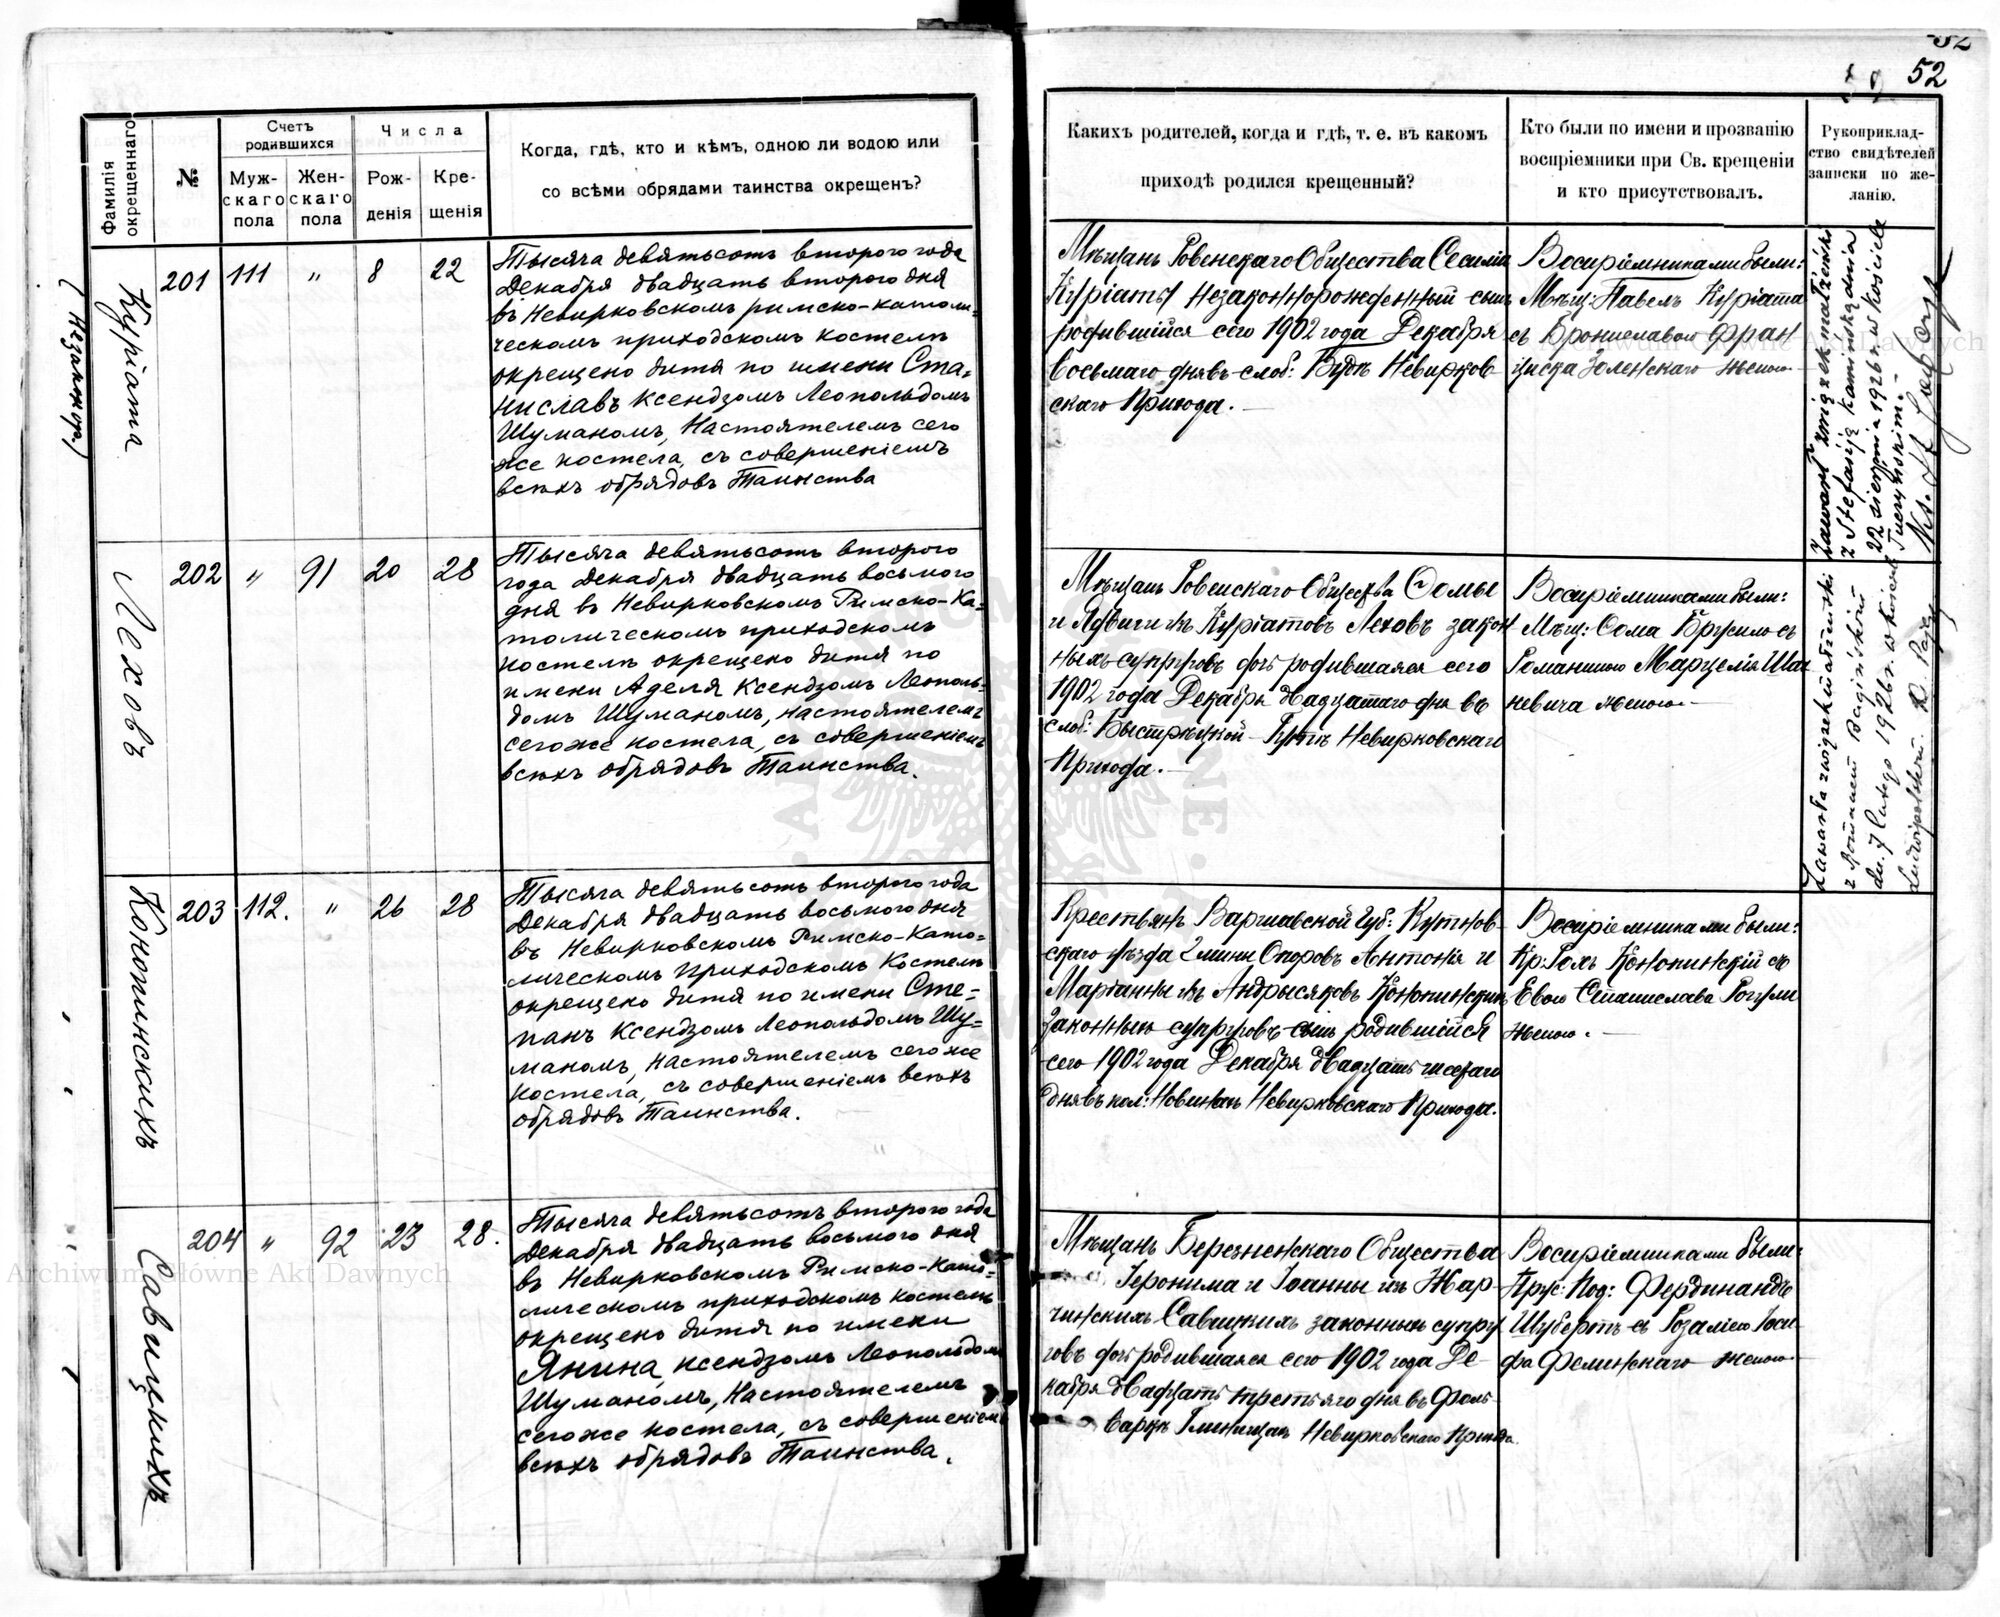 52
52
Фамилія окрещеннаго
№
Счетъ родившихся
Муж-
скаго
пола
Жен-
скаго
пола
Числа
Рож-
денія
Кре-
щенія
Когда, гдѣ, кто и кѣмъ, одною ли водою или
со всѣми обрядами таинства окрещенъ?
Какихъ родителей, когда и гдѣ, т. е. въ какомъ
приходѣ родился крещенный?
Кто были по имени и прозванію
воспріемники при Св. крещеніи
и кто присутствовалъ.
Руконриклад-
ство свидѣтелей
записки по же-
ланію.
Куріата
(незаконнор.)
201 111 " 8 22
Тысяча девятьсотъ второго года
Декабря двадцать второго дня
въ Невирковскомъ римско-католи=
ческомъ приходскомъ костелѣ
окрещено дитя по имени Ста=
ниславъ Ксендзомъ Леопольдомъ
Шуманомъ, Настоятелемъ сего
же костела, съ совершеніемъ
всѣхъ обрядовъ Таинства
Мѣщанъ Ровенскаго Общества
Куріаты незаконнорожденный сынъ
родившійся сего 1902 года Декабря
восьмаго дня въ слоб: Невирков-
скаго Прихода. —
Воспріемниками были:
Мѣщ: Павелъ Куріата
съ Брониславою Фран
циска Зеленскаго женою. —
Zawarł związek małżeński
z Stefanją Kamińską dnia
22 sierpnia 1926 r. w kościele
Tuczyńskim. —
Ks.
Леховъ
202 " 91 20 28
Тысяча девятьсотъ второго
года Декабря двадцать восьмого
дня въ Невирковскомъ Римско-Ка=
толическомъ приходскомъ
костелѣ окрещено дитя по
имени Аделя Ксендзомъ Леополь=
домъ Шуманомъ, настоятелемъ
сего же костела, съ совершеніемъ
всѣхъ обрядовъ Таинства.
Мѣщанъ Ровенскаго Общества Сомы
и Ядвиги изъ Куріатовъ Леховъ закон
ныхъ супруговъ дочь родившаяся сего
1902 года Декабря двадцатаго дня въ
слоб: Быстрицкой-Невирковскаго
Прихода. —
Воспріемниками были:
Мѣщ: Сома Брусило съ
Романиею Марцелія
невича женою. —
Zawarła związek małżeński
z Romanem
dn. 7 lutego 1926 r. w kościele
Ludwipolskim.
Конопинскихъ
203 112. " 26 28
Тысяча девятьсотъ второго года
Декабря двадцать восьмого дня
въ Невирковскомъ Римско-Като=
лическомъ Приходскомъ Костелѣ
окрещено дитя по имени Сте=
панъ Ксендзомъ Леопольдомъ Шу=
маномъ, настоятелемъ сего же
костела, съ совершеніемъ всѣхъ
обрядовъ Таинства.
Крестьянъ Варшавской Губ: Кутнов-
скаго уѣзда Гмины Опоровъ Антонія и
Маріанны изъ Андрысяковъ Конопинскихъ
законныхъ супруговъ сынъ родившійся
сего 1902 года Декабря двадцать шестаго
дня въ кол: Новинахъ Невирковскаго Прихода.
Воспріемниками были:
Кр: Конопинскій съ
Евою Станислава Рогули
женою. —
Савицкихъ
204 " 92 23 28.
Тысяча девятьсотъ второго года
Декабря двадцать восьмого дня
въ Невирковскомъ Римско-Като=
лическомъ приходскомъ костелѣ
окрещено дитя по имени
Янина, ксендзомъ Леопольдомъ
Шуманомъ, Настоятелемъ
сего же костела, съ совершеніемъ
всѣхъ обрядовъ Таинства.
Мѣщанъ Березненскаго Общества
Іеронима и Іоанны изъ Жар-
чинскихъ Савицкихъ законныхъ супру
говъ дочь родившаяся сего 1902 года Де-
кабря двадцать третьяго дня въ фоль-
варкѣ Невирковскаго Прихода.
Воспріемниками были:
Прус: Под: Фердинандъ
Шубертъ съ Розаліею Іоси-
фа Фелинскаго женою. —
Archiwum Główne Akt Dawnych
Archiwum Główne Akt Dawnych